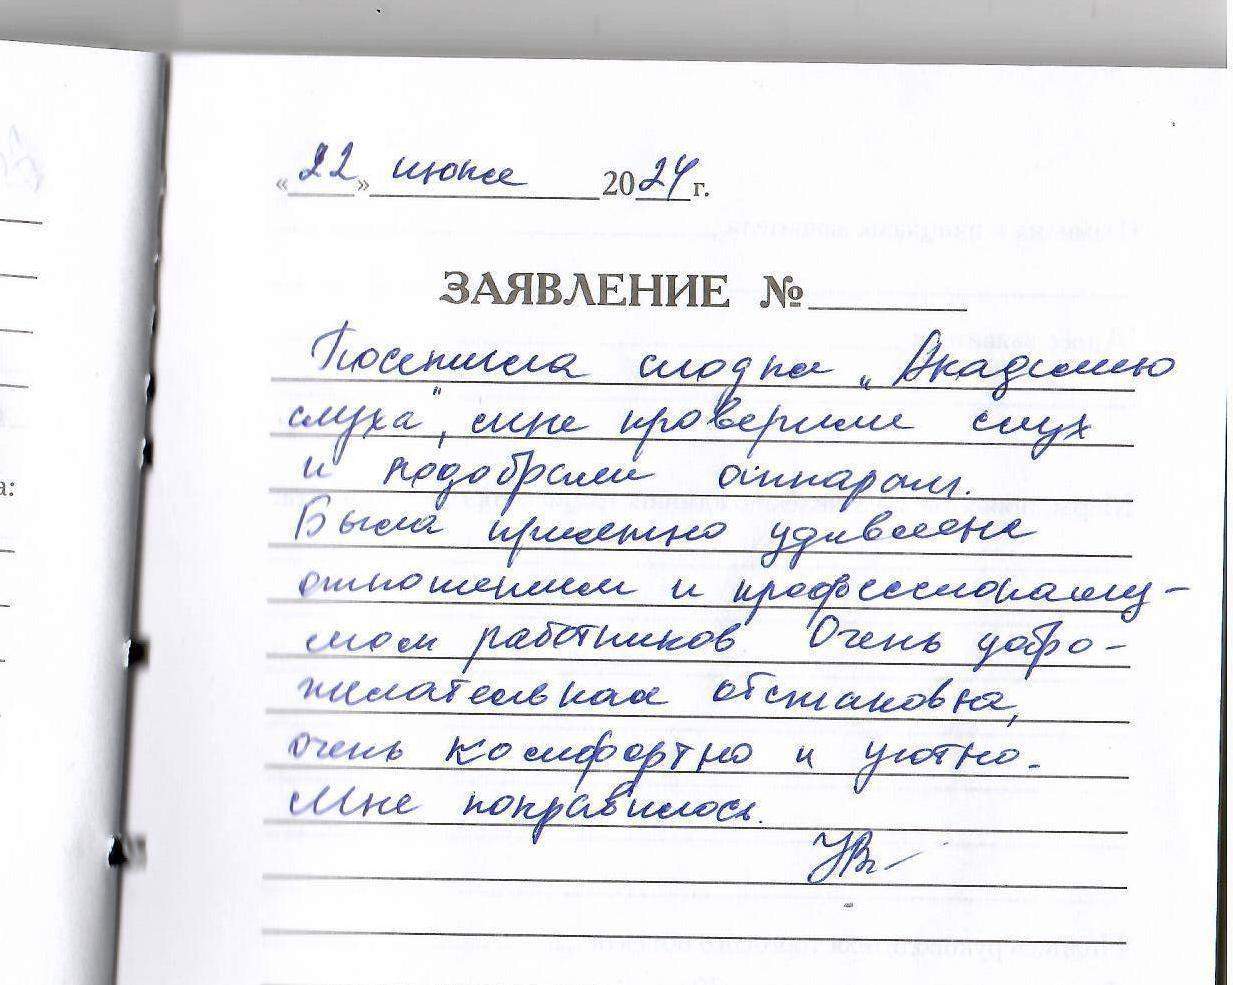 «22» июня 2024 г.
ЗАЯВЛЕНИЕ №
Посетила сегодня „Академию
слуха", мне проверили слух
и подобрали аппарат.
Была приятно удивлена
отношением и профессионализ-
мом работников Очень добро-
желательная обстановка,
очень комфортно и уютно.
Мне понравилось.
а: